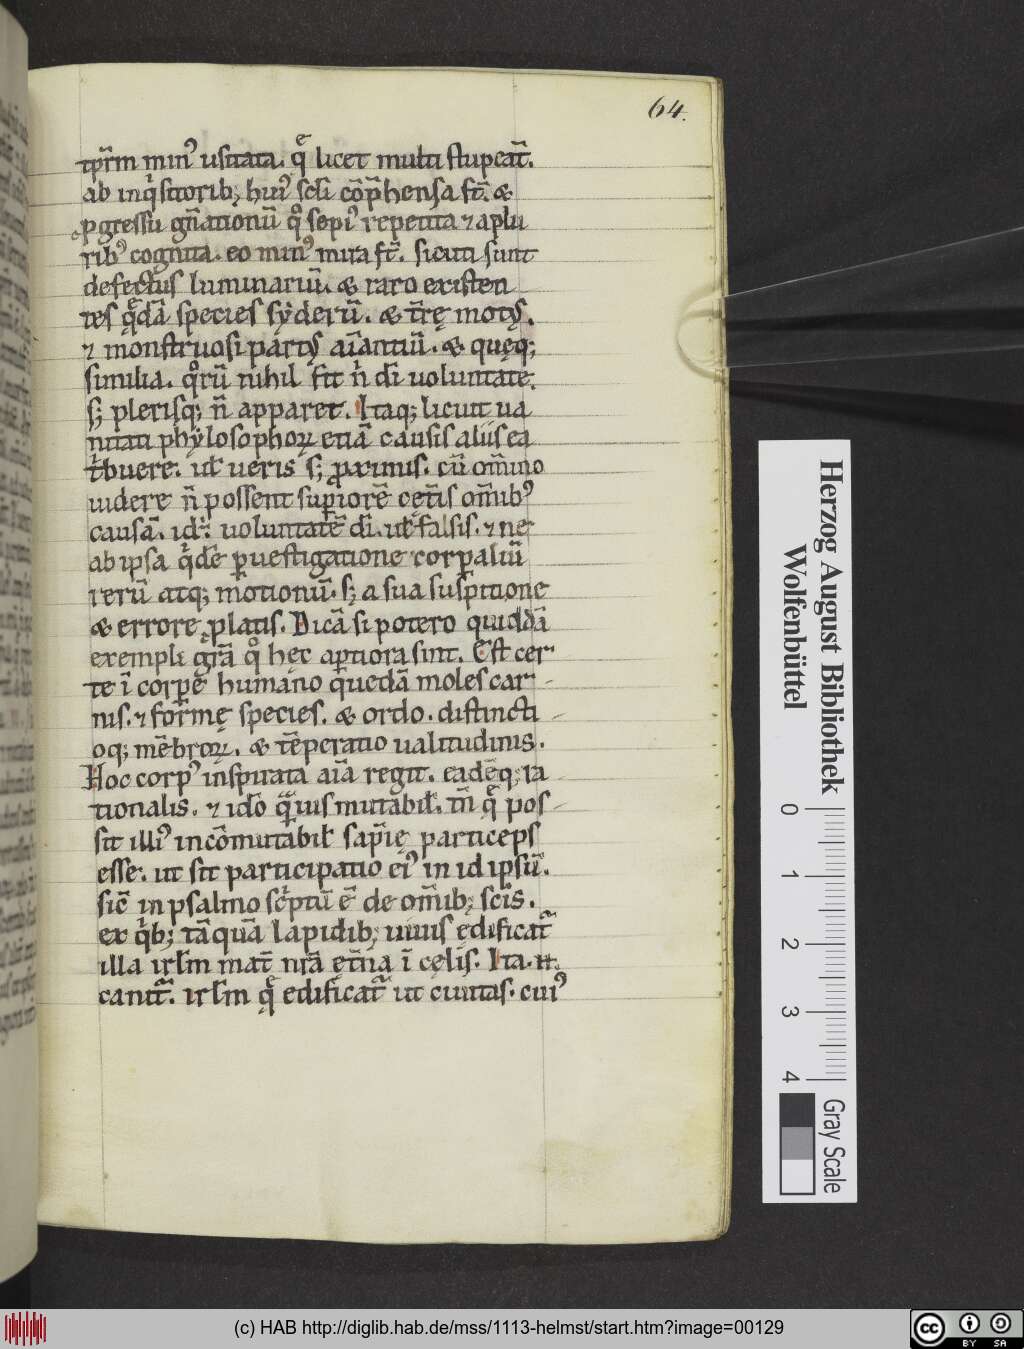 64.
tp̄rm min᷒ usitata. q̄ licet multi stupeat̄.
ab inq̇sitorib; hui᷒ scl̄i cōp̄hensa st̄. &
pgressu gn̄ationū q° sepi᷒ repetita ⁊ a plu
rib᷒ cognita. eo min᷒ mira st̄. sicuti sunt
defectus luminariū. & raro existen
tes q̄dā species sẏderū. & tr̄ę mot᷒.
⁊ monstruosi part᷒ aīantiū. & quęq;
similia. q°rū nihil fit n̄ dī uoluntate.
s; plerisq; n̄ apparet. Itaq; licuit ua
nitati phẏlosophoꝝ etiā causis aliis ea
t̄buere. ul̄ ueris s; proximis. cū om̄ino
uidere n̄ possent supiorē cęt̄is om̄ib᷒
causā. id. uoluntatē dī. ul̄ falsis. ⁊ ne
ab ipsa q̇dē puestigatione corpaliū
rerū atq; motionū. s; a sua suspitione
& errore platis. Dicā si potero quiddā
exempli grā q° hec aptiora sint. Est cer
te ī corpe humano quedā moles car
nis. ⁊ formę species. & ordo. distincti
oq; mēbroꝝ. & tēperatio ualitudinis.
Hoc corp᷒ inspirata aīa regit. eadēq; ra
tionalis. ⁊ idō q̄uis mutabil̄. tn̄ q̄ pos
sit illi᷒ incōmutabil̄ sap̄ię particeps
esse. ut sit participatio ei᷒ in id ipsū.
sic̄ in psalmo sċptū ē de om̄ib; scīs.
ex q̇b; tāquā lapidib; uiuis edificat᷑
illa irl̄m mat̄ nr̄a ęt̄na ī cęlis. Ita. n.
canit᷑. irl̄m q̄ edificat᷑ ut ciuitas. cui᷒
Herzog August Bibliothek
Wolfenbüttel
0 1 2 3 4
Gray Scale
(c) HAB http://diglib.hab.de/mss/1113-helmst/start.htm?image=00129
cc BY SA